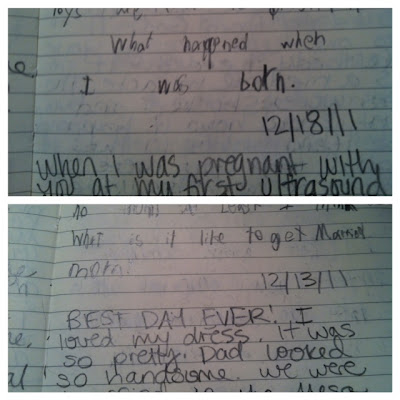 What happened when
I was born.
12/18/11
When I was pregnant with
you at my first ultrasound
What is it like to get Married
mom?
12/13/11
BEST DAY EVER! I
loved my dress. It was
so pretty. Dad looked
so handsome. We were